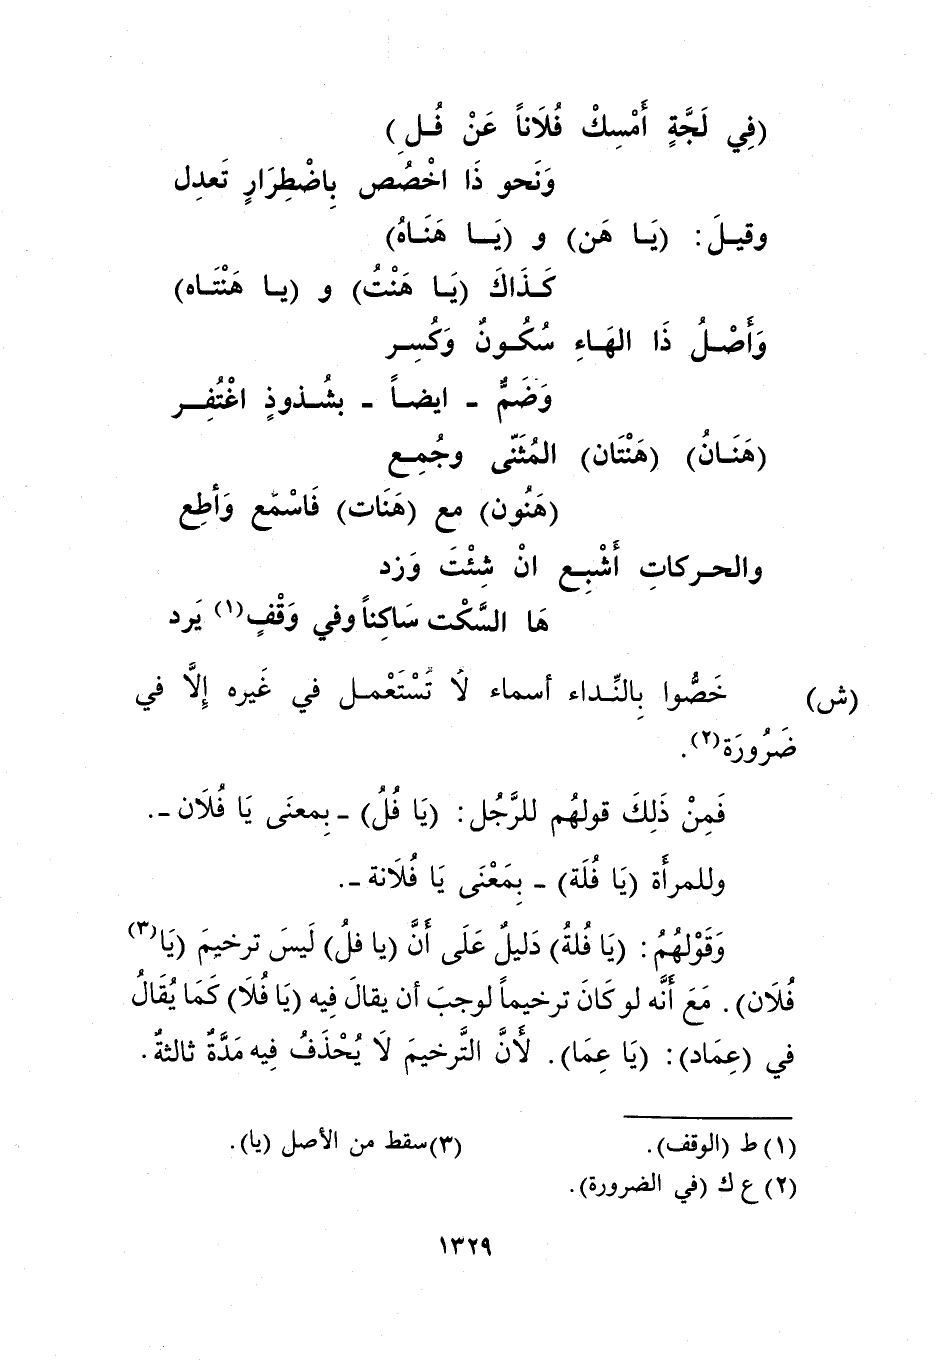 (فِي لَجَّةٍ أَمْسِكْ فُلَاناً عَنْ فُـلِ)
وَنَحو ذَا اخْصُص بِاضْطِرَارٍ تَعدِل
وقيـلَ: (يَـا هَن) و (يَــا هَنَـاهُ)
كَـذَاكَ (يَـا هَنْتُ) و (يـا هَنْتَـاه)
وَأَصْـلُ ذَا الهَـاءِ سُكُـونٌ وَكُسِـر
وَضَمٌّ - ايضـاً - بشُـذوذٍ اغْتُفِــر
(هَنَـانُ) (هَنْتَان) المُثَنّى وجُمِـع
(هَنُون) مع (هَنَات) فَاسْمَع وَأطِع
والحـركاتِ أَشْبِـع انْ شِئْتَ وَزد
هَا السَّكْت سَاكِناً وفي وَقْفٍ(١) يَرد
(ش) خَصُّوا بِالنِّـداء أسماء لَا تُسْتَعْمـل في غَيره إِلَّا في
ضَرُورَة(٢).
فَمِنْ ذَلِكَ قولهُم للرَّجُل: (يَا فُلُ) - بمعنَى يَا فُلَان -.
وللمرأَة (يَا فُلَة) - بِمَعْنَى يَا فُلَانة -.
وَقَوْلهُمُ: (يَا فُلةُ) دَليلٌ عَلَى أَنَّ (يا فلُ) لَيسَ ترخيمَ (يَا(٣)
فُلَان). مَعَ أَنَّه لو كَانَ ترخيماً لوجبَ أن يقالَ فِيه (يَا فُلَا) كَمَا يُقَالُ
في (عِمَاد): (يَا عِمَا). لأَنَّ التَّرخيمَ لَا يُحْذَفُ فِيه مَدَّةٌ ثالثةٌ.
(١) ط (الوقف). (٣) سقط من الأصل (يا).
(٢) ع ك (في الضرورة).
١٣٢٩